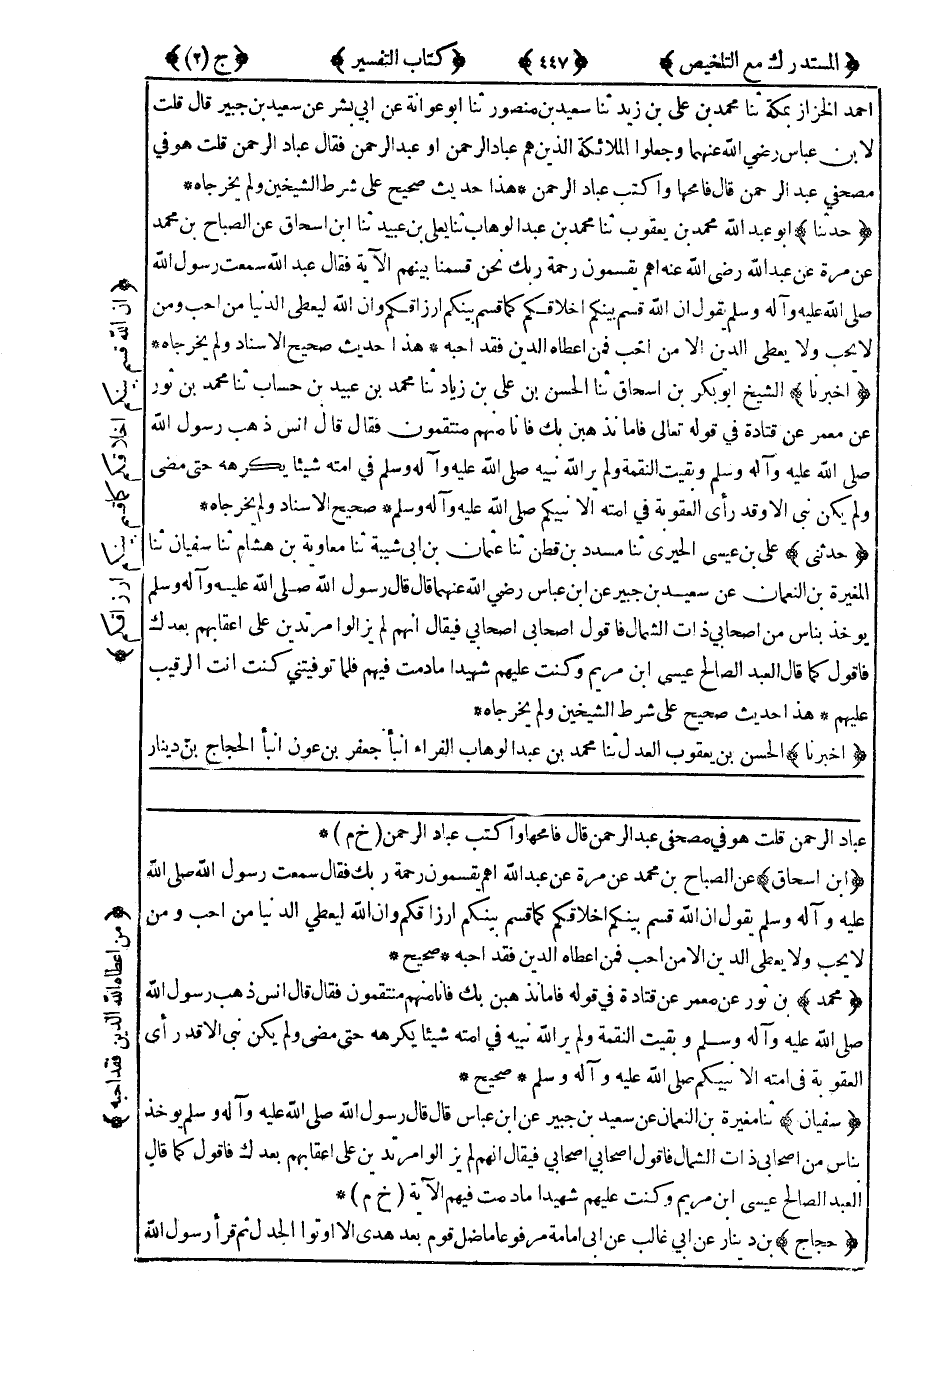 ﴿ المستدرك مع التلخيص ﴾ ﴿ ٤٤٧ ﴾ ﴿ كتاب التفسير ﴾ ﴿ ج (٢) ﴾
احمد الخزاز بمكة ثنا محمد بن على بن زيد ثنا سعيد بن منصور ثنا ابو عوانة عن ابي بشر عن سعيد بن جبير قال قلت
لابن عباس رضي الله عنهما وجعلوا الملائكة الذين هم عباد الرحمن او عبد الرحمن فقال عباد الرحمن قلت هو في
مصحفي عبد الرحمن قال فامحها واكتب عباد الرحمن * هذا حديث صحيح على شرط الشيخين ولم يخرجاه *
﴿ حدثنا ﴾ ابو عبد الله محمد بن يعقوب ثنا محمد بن عبد الوهاب ثنا يعلى بن عبيد ثنا ابن اسحاق عن الصباح بن محمد
عن مرة عن عبد الله رضي الله عنه اهم يقسمون رحمة ربك نحن قسمنا بينهم الآية فقال عبد الله سمعت رسول الله
صلى الله عليه وآله وسلم يقول ان الله قسم بينكم اخلاقكم كما قسم بينكم ارزاقكم وان الله ليعطى الدنيا من احب ومن
لا يحب ولا يعطى الدين الا من احب فمن اعطاه الدين فقد احبه * هذا حديث صحيح الاسناد ولم يخرجاه *
﴿ اخبرنا ﴾ الشيخ ابو بكر بن اسحاق ثنا الحسن بن على بن زياد ثنا محمد بن عبيد بن حساب ثنا محمد بن ثور
عن معمر عن قتادة في قوله تعالى فاما نذهبن بك فانا منهم منتقمون فقال قال انس ذهب رسول الله
صلى الله عليه وآله وسلم وبقيت النقمة ولم ير الله نبيه صلى الله عليه وآله وسلم في امته شيئا يكرهه حتى مضى
ولم يكن نبى الا وقد رأى العقوبة في امته الا نبيكم صلى الله عليه وآله وسلم * صحيح الاسناد ولم يخرجاه *
﴿ حدثنى ﴾ على بن عيسى الحيرى ثنا مسدد بن قطن ثنا عثمان بن ابى شيبة ثنا معاوية بن هشام ثنا سفيان ثنا
المغيرة بن النعمان عن سعيد بن جبير عن ابن عباس رضي الله عنهما قال قال رسول الله صلى الله عليه وآله وسلم
يوخذ بناس من اصحابي ذات الشمال فاقول اصحابى اصحابي فيقال انهم لم يزالوا مرتدين على اعقابهم بعدك
فاقول كما قال العبد الصالح عيسى ابن مريم وكنت عليهم شهيدا مادمت فيهم فلما توفيتني كنت انت الرقيب
عليهم * هذا حديث صحيح على شرط الشيخين ولم يخرجاه *
﴿ اخبرنا ﴾ الحسن بن يعقوب العدل ثنا محمد بن عبد الوهاب الفراء انبأ جعفر بن عون انبأ الحجاج بن دينار
عباد الرحمن قلت هو في مصحفى عبد الرحمن قال فامحها واكتب عباد الرحمن ( خ م ) *
﴿ ابن اسحاق ﴾ عن الصباح بن محمد عن مرة عن عبد الله اهم يقسمون رحمة ربك فقال سمعت رسول الله صلى الله
عليه وآله وسلم يقول ان الله قسم بينكم اخلاقكم كما قسم بينكم ارزاقكم وان الله ليعطي الدنيا من احب ومن
لا يحب ولا يعطى الدين الا من احب فمن اعطاه الدين فقد احبه * صحيح *
﴿ محمد ﴾ بن ثور عن معمر عن قتادة في قوله فاما نذهبن بك فانا منهم منتقمون فقال قال انس ذهب رسول الله
صلى الله عليه وآله وسلم وبقيت النقمة ولم ير الله نبيه في امته شيئا يكرهه حتى مضى ولم يكن نبى الا قد رأى
العقوبة فى امته الا نبيكم صلى الله عليه وآله وسلم * صحيح *
﴿ سفيان ﴾ ثنا مغيرة بن النعمان عن سعيد بن جبير عن ابن عباس قال قال رسول الله صلى الله عليه وآله وسلم يوخذ
بناس من اصحابى ذات الشمال فاقول اصحابي اصحابي فيقال انهم لم يزالوا مرتدين على اعقابهم بعدك فاقول كما قال
العبد الصالح عيسى ابن مريم وكنت عليهم شهيدا مادمت فيهم الآية ( خ م ) *
﴿ حجاج ﴾ بن دينار عن ابي غالب عن ابى امامة مرفوعا ماضل قوم بعد هدى الا اوتوا الجدل ثم قرأ رسول الله
﴿ ان الله قسم بينكم اخلاقكم كما قسم بينكم ارزاقكم ﴾
﴿ من اعطاه الله الدين فقد احبه ﴾